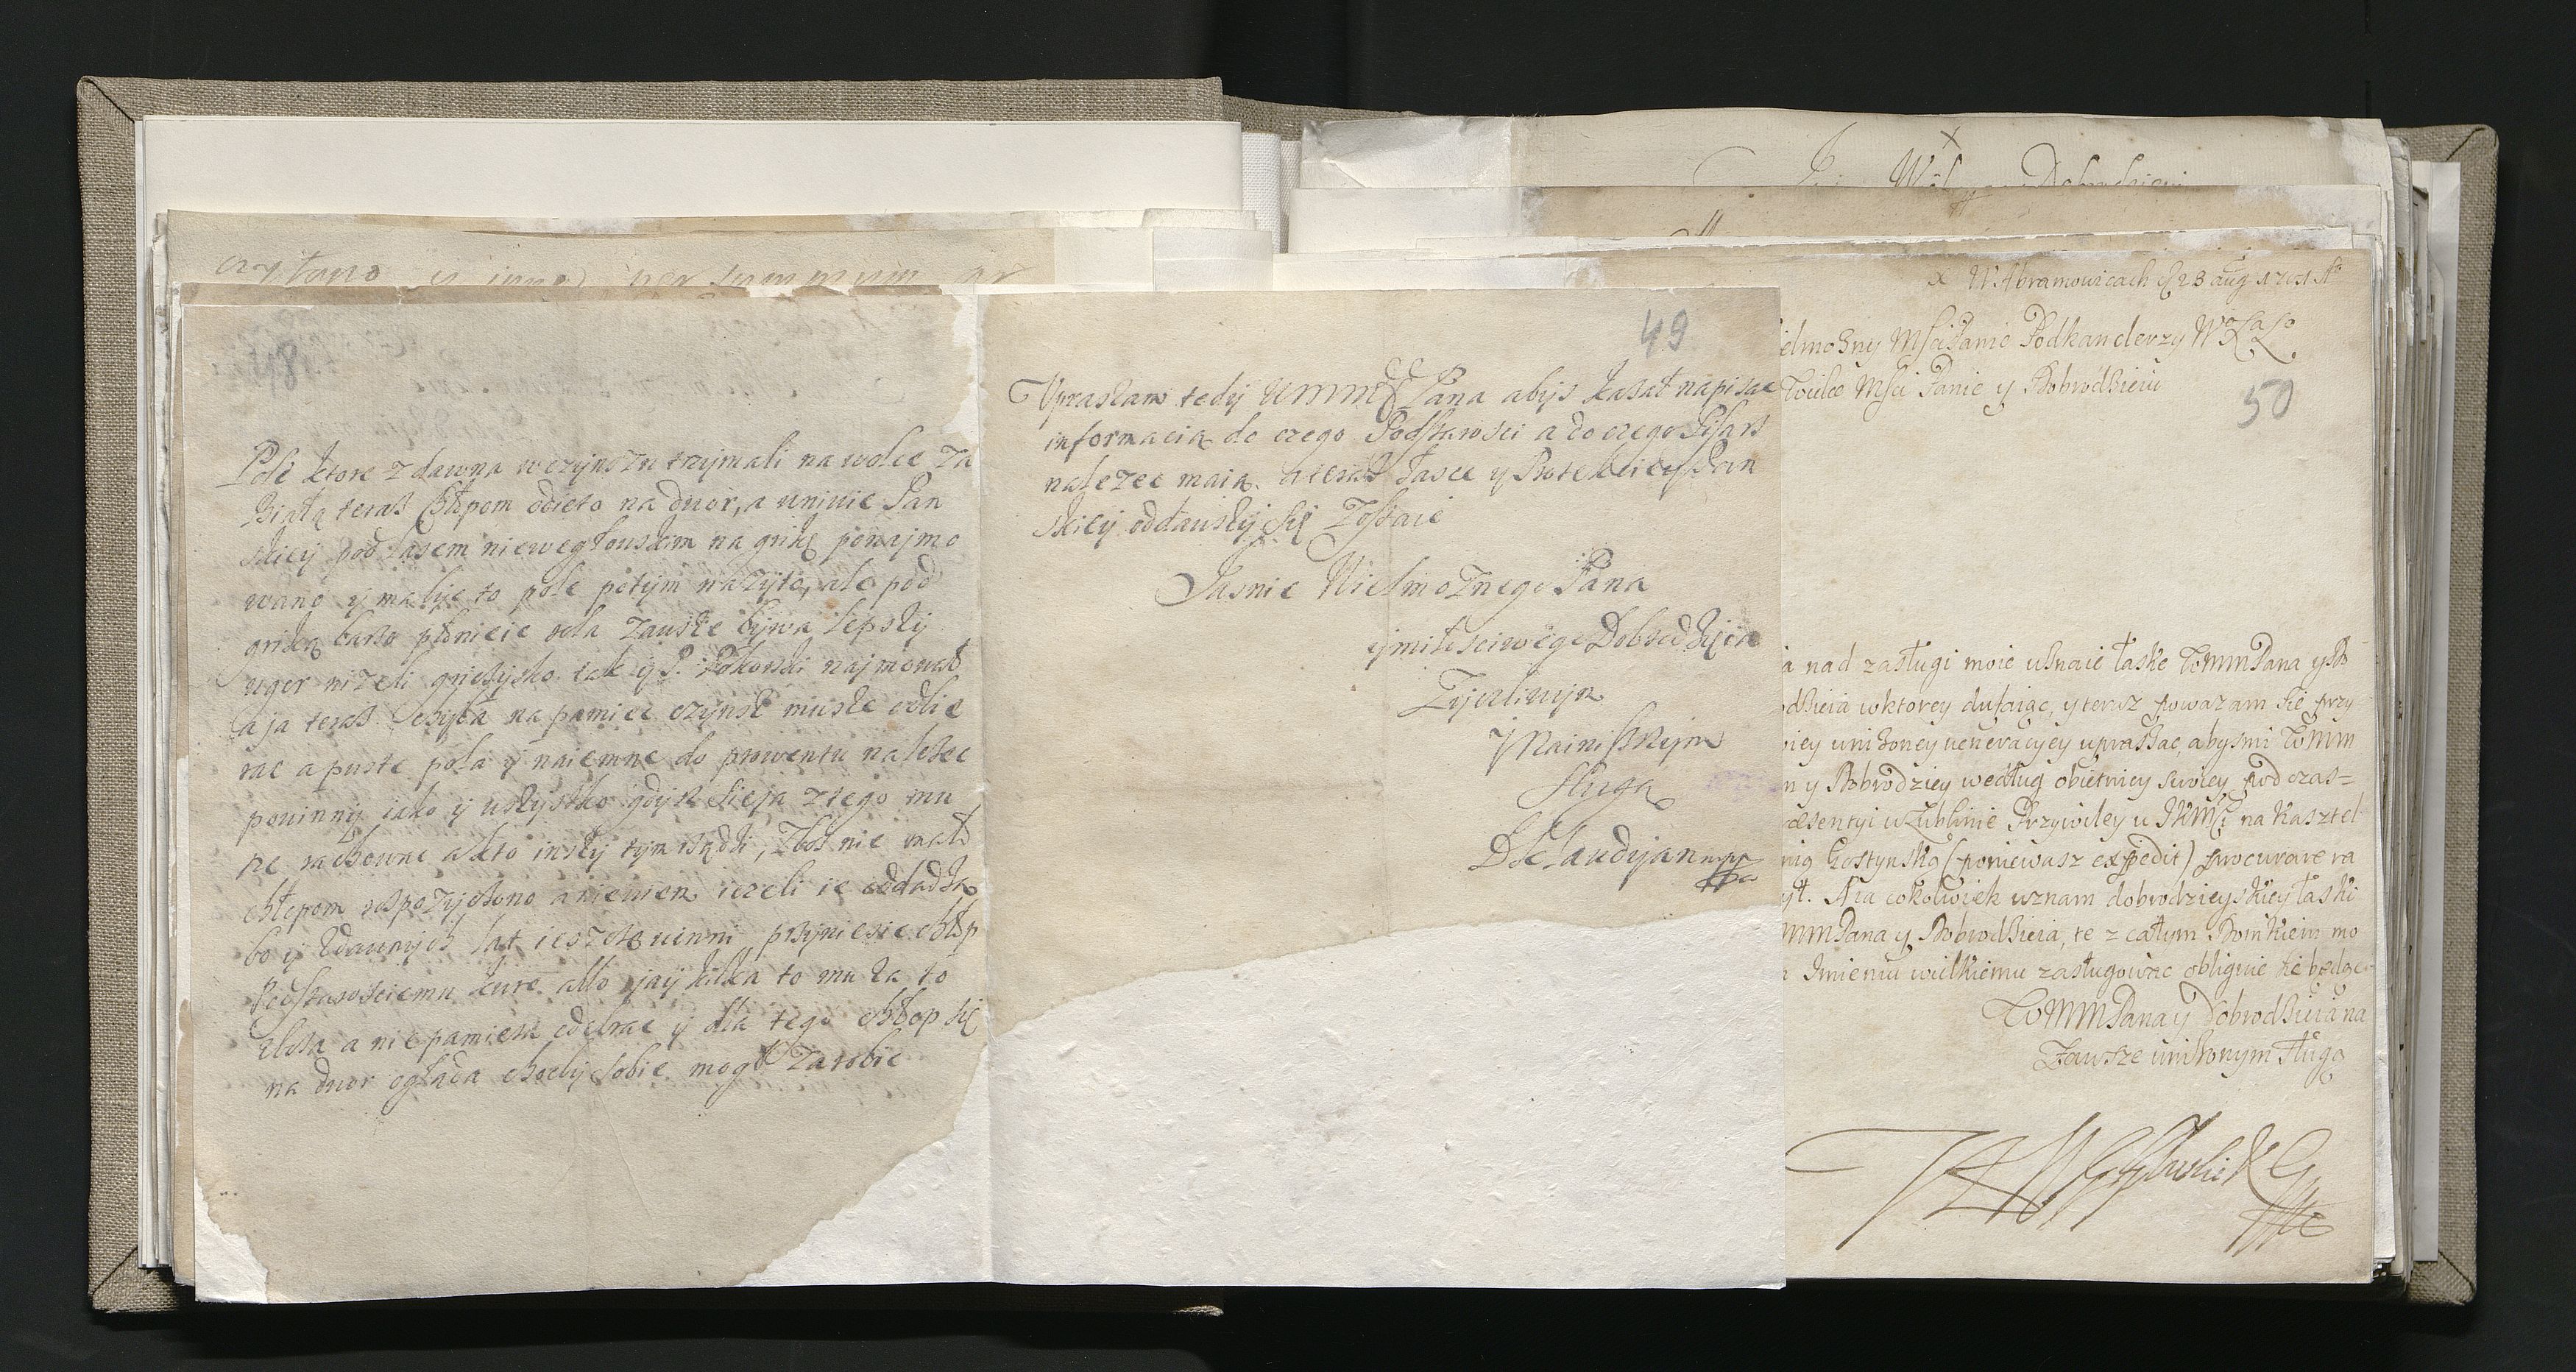 Pole ktore zdawna wczynszu trzymali na wolce Za
Białą teras chłopom odieto na dwor, a uniwie Pan
skiey pod lasem niewegłouskim na grikę ponajmo
wano y malije to pole potym na zyto, ale pod
griką barzo płonieie rola zauske bywa lepszy
uger nizeli gryczysko tak yP. Rokoski najmował
a ja teras chyba na pamiec czynsz musze odbie
rac a puste pola y naiemne do prowentu nalezec
powinny iako y uszystko gdysz
ne rachowne a kto inszy tym rządzi, Zboz nie mało
chłopom rospozyczono a niewiem iezeli ie oddadzą
bo y zdawnych lat ieszcze winni przyniesie chłop
Podstarosciemu kure albo jaij kilka to mu za to
zboza a niepamieta odebrac y dla tego chłop się
na dwor ogląda choc by sobie mogł zarobic
49
Upraszam tedy UMM Pana abys kasał napisac
informacią do czego Podstarosci a do czego Pisarz
nalezec maią. a teras łasce y Protekciey Pan
skiey oddawszy się Zostaie
Jasnie Wielmoznego Pana
ymiłosciwego Dobrodzieia
Zyczliwym
y nainiszszym
sługą
DKlaudyan mpp
x W Abramowicach d 23 aug 1701 A
elmozny Msci Panie Podkanclerzy W X L
Wielce Msci Panie y Dobrodzieiu
50
a nad zasługi moie uznaie łaske WMMPana y Do
odzieia w ktorey dufaiąc, y teraz powazam sie przy
niey unizoney veneracyey upraszac, abysmi WMM
n y Dobrodziey według obietnicy swoiey pod czas=
resentyi w Lublinie Przywiley u JKMsci na Kasztel
nią Gostynską (poniewasz expedit) procurare ra
ył. Nia cokolwiek uznam dobrodzieyskiey łaski
MMPana y Dobrodzieia, te z całym Domkiem mo
Imieniu wielkiemu zasługowac obliguie sie będąc
WMMPana y Dobrodzieia na
Zawsze unizonym sługą